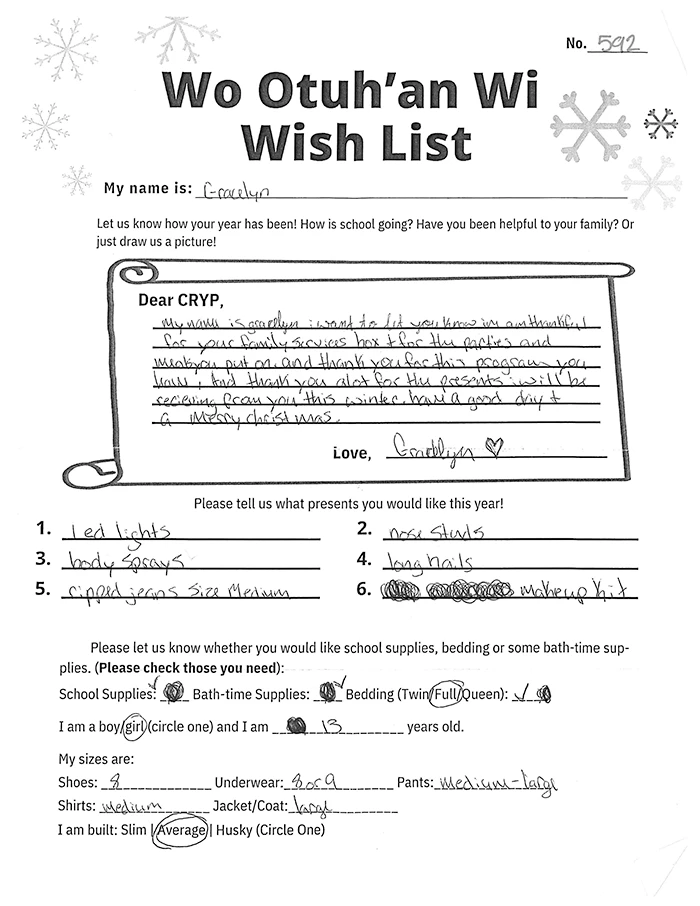 No. 592
Wo Otuh'an Wi
Wish List
My name is: Gracelyn
Let us know how your year has been! How is school going? Have you been helpful to your family? Or
just draw us a picture!
Dear CRYP,
my name is gracelyn i want to let you know im am thankful
for your family services box + for the parties and
meals you put on. and thank you for this program you
have, And thank you alot for the presents i will be
recieving from you this winter. have a good day +
a Merry christmas.
Love, Gracelyn ♡
Please tell us what presents you would like this year!
1. led lights 2. nose studs
3. body sprays 4. long nails
5. ripped jeans size Medium 6. makeup kit
Please let us know whether you would like school supplies, bedding or some bath-time sup-
plies. (Please check those you need):
School Supplies: ✓ Bath-time Supplies: ✓ Bedding (Twin/Full/Queen): ✓
I am a boy/girl (circle one) and I am 13 years old.
My sizes are:
Shoes: 8 Underwear: 8 or 9 Pants: Medium-Large
Shirts: Medium Jacket/Coat: large
I am built: Slim | Average | Husky (Circle One)